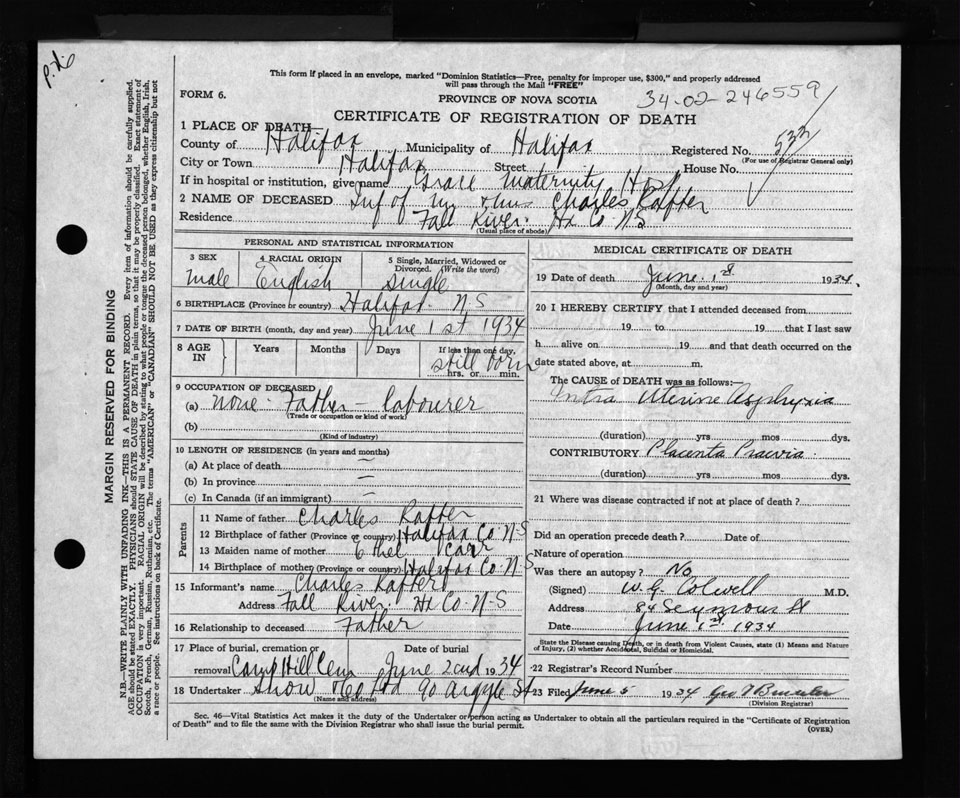 p.d.
This form if placed in an envelope, marked "Dominion Statistics—Free, penalty for improper use, $300," and properly addressed
will pass through the Mail "FREE"
FORM 6.
PROVINCE OF NOVA SCOTIA
34-02-246559
CERTIFICATE OF REGISTRATION OF DEATH
1 PLACE OF DEATH
County of Halifax Municipality of Halifax Registered No. 533
(For use of Registrar General only)
City or Town Halifax Street House No.
If in hospital or institution, give name Grace Maternity Hosp
2 NAME OF DECEASED Inf of Mr & Mrs Charles Rafter
Residence Fall River Hx Co N S
(Usual place of abode)
PERSONAL AND STATISTICAL INFORMATION
3 SEX 4 RACIAL ORIGIN 5 Single, Married, Widowed or
Divorced. (Write the word)
Male English Single
6 BIRTHPLACE (Province or country) Halifax N S
7 DATE OF BIRTH (month, day and year) June 1st 1934
8 AGE IN Years Months Days If less than one day,
still born
hrs. or min.
9 OCCUPATION OF DECEASED
(a) None Father - labourer
(Trade or occupation or kind of work)
(b)
(Kind of industry)
10 LENGTH OF RESIDENCE (in years and months)
(a) At place of death —
(b) In province —
(c) In Canada (if an immigrant) —
Parents
11 Name of father Charles Rafter
12 Birthplace of father (Province or country) Halifax Co. N-S
13 Maiden name of mother Ethel Carr
14 Birthplace of mother (Province or country) Halifax Co. N-S
15 Informant's name Charles Rafter
Address Fall River Hx Co. N-S
16 Relationship to deceased Father
17 Place of burial, cremation or Date of burial
removal Camp Hill Cem June 2nd 1934
18 Undertaker Snow & Co Ltd 90 Argyle St
(Name and address)
MEDICAL CERTIFICATE OF DEATH
19 Date of death June 1st 1934.
(Month, day and year)
20 I HEREBY CERTIFY that I attended deceased from
19 to 19 that I last saw
h alive on 19 and that death occurred on the
date stated above, at m.
The CAUSE of DEATH was as follows:—
Intra Uterine Asphyxia
(duration) yrs mos dys.
CONTRIBUTORY Placenta Praevia
(duration) yrs mos dys.
21 Where was disease contracted if not at place of death?
Did an operation precede death? Date of
Nature of operation
Was there an autopsy? No
(Signed) W. G. Colwell M.D.
Address 84 Seymour St
Date June 1st 1934
State the Disease causing Death, or in death from Violent Causes, state (1) Means and Nature
of Injury, (2) whether Accidental, Suicidal or Homicidal.
22 Registrar's Record Number
23 Filed June 5 1934 Geo
(Division Registrar)
Sec. 46—Vital Statistics Act makes it the duty of the Undertaker or person acting as Undertaker to obtain all the particulars required in the "Certificate of Registration
of Death" and to file the same with the Division Registrar who shall issue the burial permit.
(OVER)
MARGIN RESERVED FOR BINDING
N.B.—WRITE PLAINLY WITH UNFADING INK—THIS IS A PERMANENT RECORD. Every item of information should be carefully supplied.
AGE should be stated EXACTLY. PHYSICIANS should STATE CAUSE OF DEATH in plain terms, so that it may be properly classified. Exact statement of
OCCUPATION is very important. RACIAL ORIGIN will be described by stating to what people or tongue the deceased person belonged, whether English, Irish,
Scotch, French, German, Russian, Ruthenian, etc. The terms "AMERICAN" or "CANADIAN" SHOULD NOT BE USED as they express citizenship but not
a race or people. See instructions on back of Certificate.